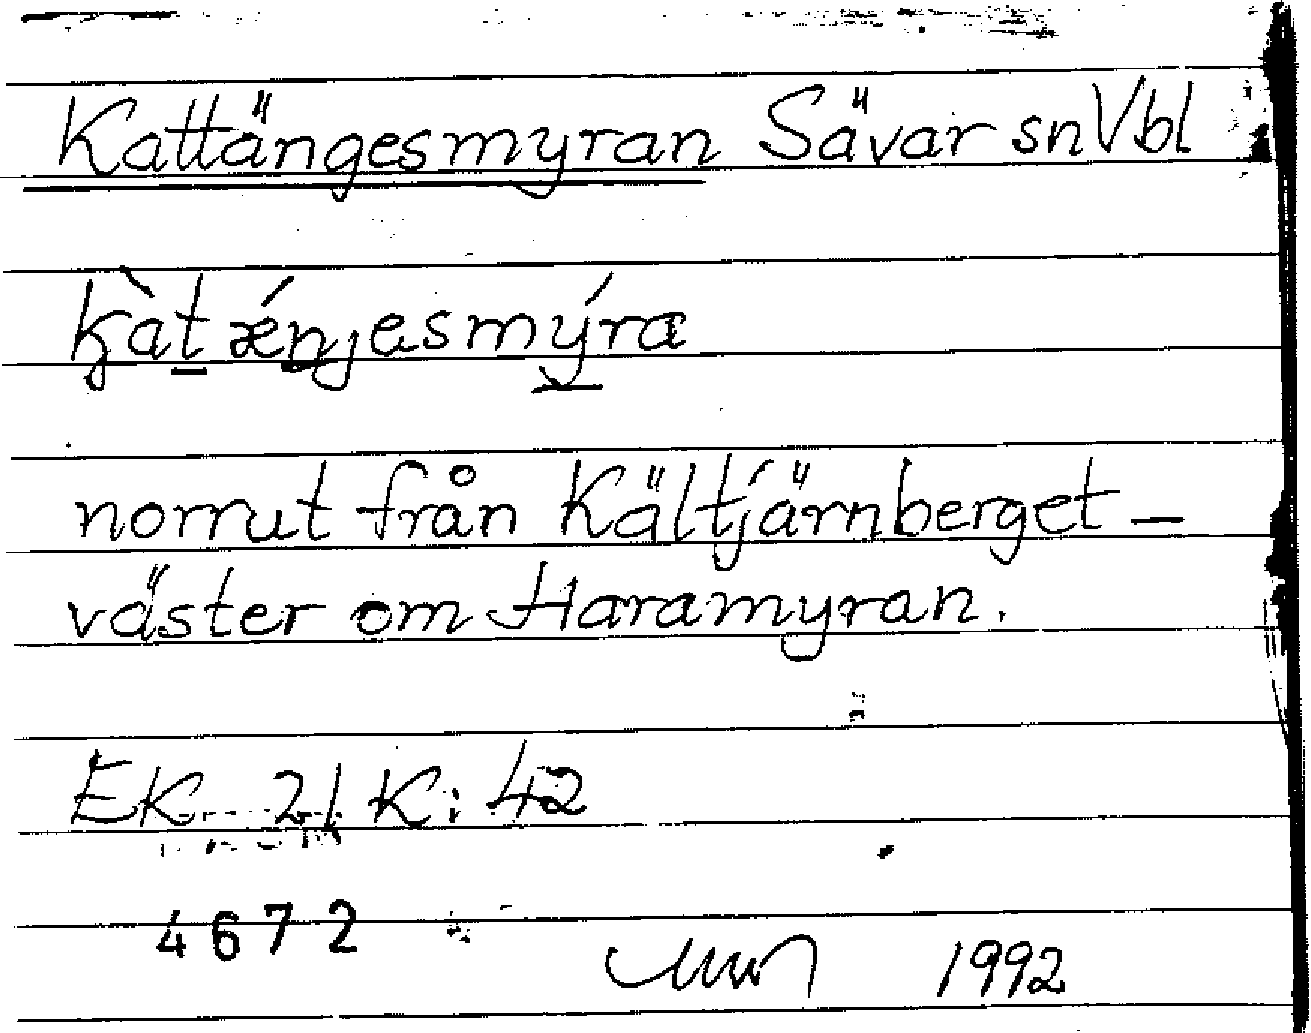 Kattängesmyran Sävar sn Vbl
kàt ǽnjesmýra
norrut från Kältjärnberget –
väster om Haramyran.
EK 21 K: 42
4672
1992